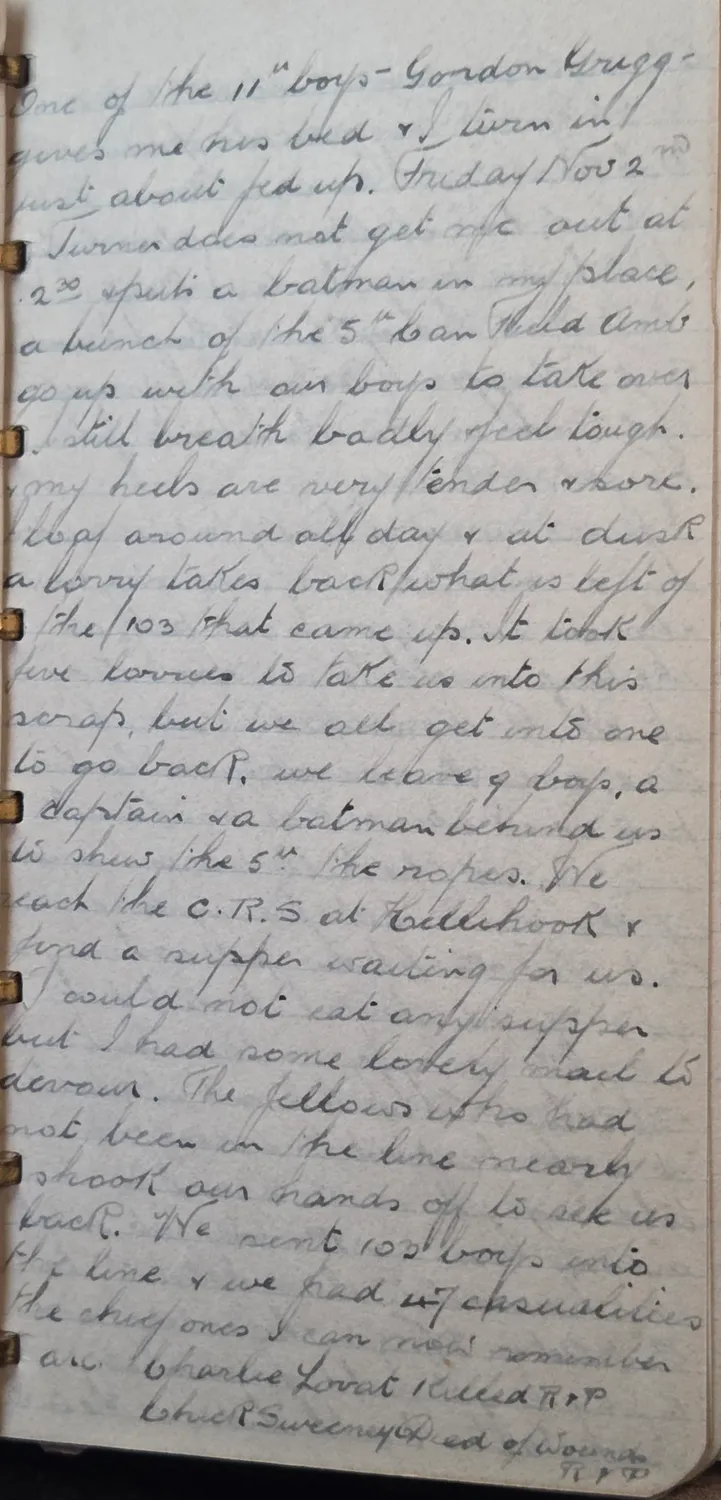 One of the 11th boys - Gordon Grigg -
gives me his bed & I turn in
just about fed up. Friday Nov 2nd
Turner does not get me out at
2³⁰ & puts a batman in my place,
a bunch of the 5th Can Field Amb
go up with our boys to take over
I still breath badly & feel tough.
& my heels are very tender & sore.
I loaf around all day & at dusk
a lorry takes back what is left of
the 103 that came up. It took
five lorries to take us into this
scrap, but we all get into one
to go back. we leave 9 boys, a
captain & a batman behind us
to shew the 5th the ropes. We
reach the C.R.S at Hillihook &
find a supper waiting for us.
I could not eat any supper
but I had some lovely mail to
devour. The fellows who had
not been in the line nearly
shook our hands off to see us
back. We sent 103 boys into
the line & we had casualities
the chief ones I can now remember
are Charlie Lovat Killed R.I.P
Chuck Sweeney Died of Wounds
R.I.P